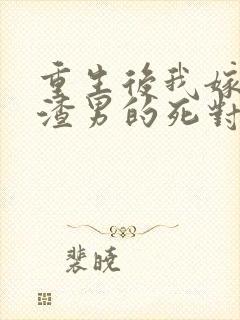 重生後我嫁
渣男的死對
裴曉